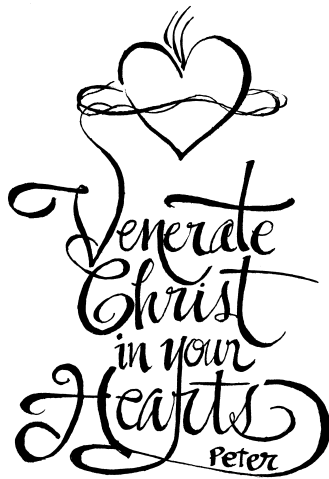 Venerate
Christ
in your
Hearts
Peter